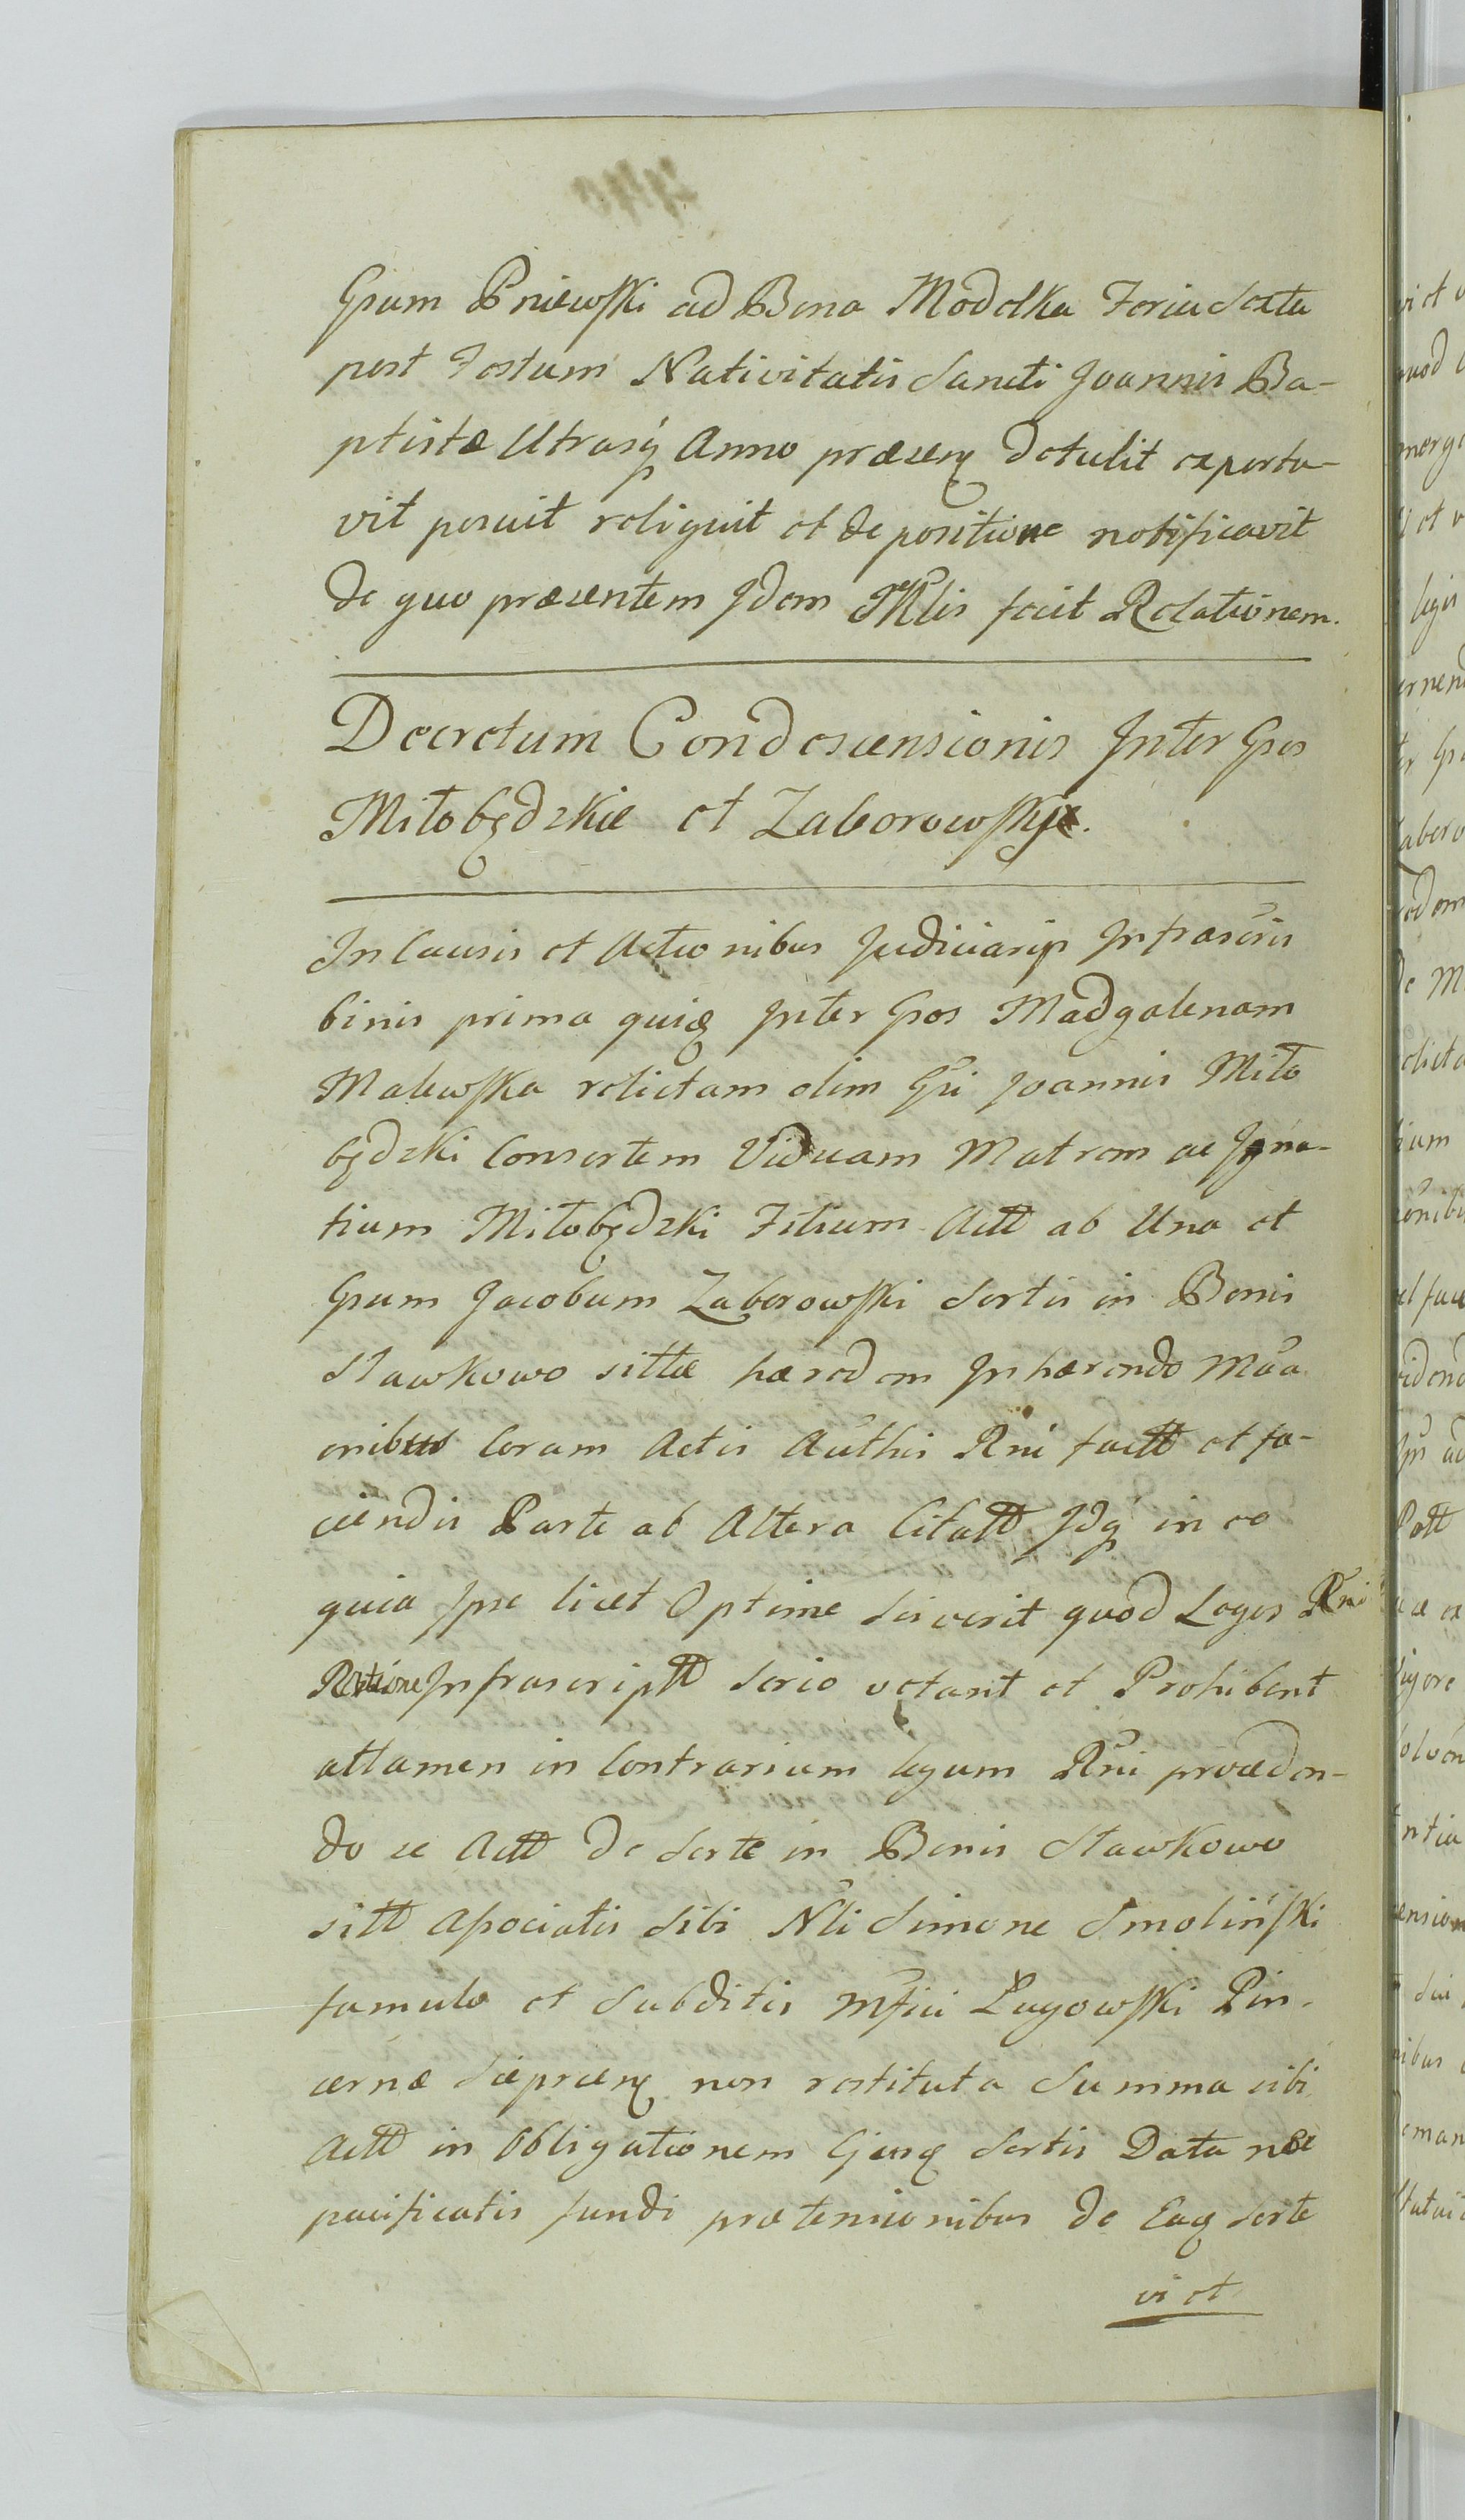 Gsum Pniewski ad Bona Modełka Feria Sexta
post Festum Nativitatis Sancti Joannis Ba-
ptistæ Utrasq Anno præsenq detulit exporta-
vit posuit reliquit et de positione notificavit
de quo præsentem Jdem Mlis fecit Relationem.
Decretum Condescensionis Jnter Gsos
Miłobędzkie et Zaborowskje.
Jn Causis et Actionibus Judiciarijs Jnfrascris
binis prima quidq Jnter Gsos Madgalenam
Malewska relictam olim Gsi Joannis Miło
będzki Consortem Viduam Matrem ac Jgna-
tium Miłobędzki Filium Actt ab Una et
Gsum Jacobum Zaborowski Sortis in Bonis
Sławkowo sittæ hæredem Jnhærendo Mãa
onibus Coram Actis Authis Rni factt et fa-
ciendis Parte ab Altera Citatt Jdq in eo
quia Jpse licet Optime Sciverit quod Leges Rni
Ratione Jnfrascriptt Serio vetant et Prohibent
attamen in Contrarium legum Rni proceden-
do se Actt de Sorte in Bonis Sławkowo
sitt Associatis Sibi Nli Simone Smoliński
famulo et Subditis Mfici Ługowski Pin-
cernæ Sieprcenq non restituta Summa sibi
Actt in Obligationem Ejusq Sortis Data nec
pacificatis fundi prætensionibus de Eaq Sorte
vi et